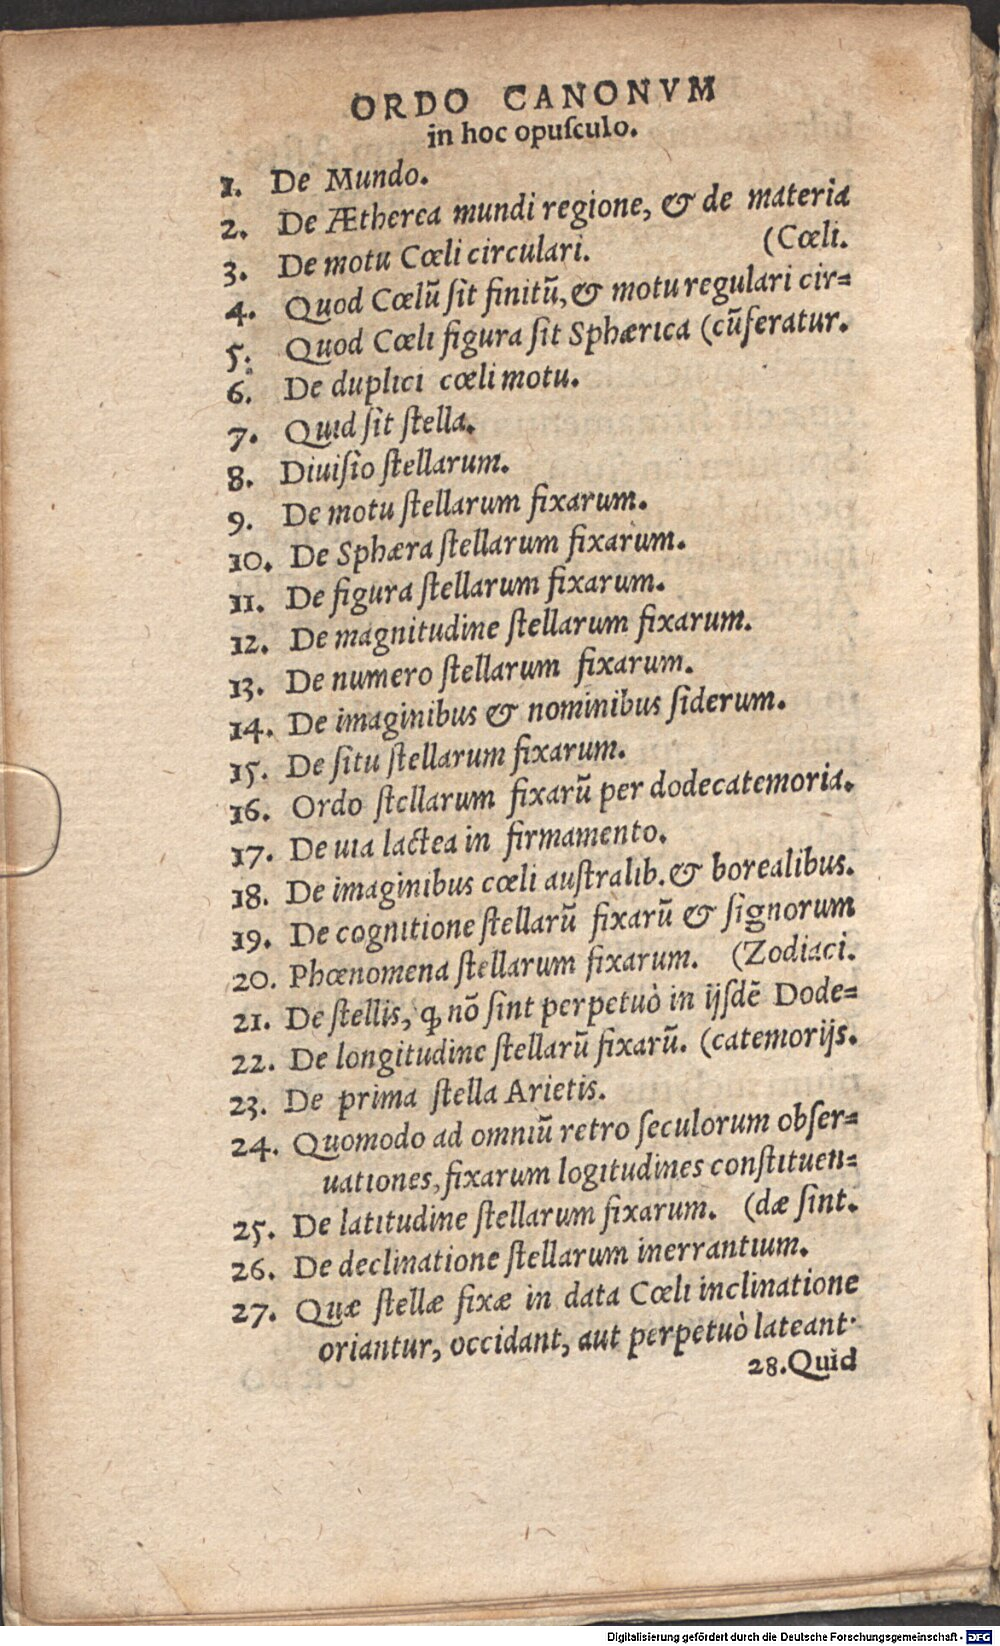 ORDO CANONVM
in hoc opuſculo.
1. De Mundo.
2. De Ætherea mundi regione, & de materia
3. De motu Cœli circulari. (Cœli.
4. Quod Cœlū ſit finitū, & motu regulari cir=
5. Quod Cœli figura ſit Sphærica (cūferatur.
6. De duplici cœli motu.
7. Quid ſit ſtella.
8. Diuiſio ſtellarum.
9. De motu ſtellarum fixarum.
10. De Sphæra ſtellarum fixarum.
11. De figura ſtellarum fixarum.
12. De magnitudine ſtellarum fixarum.
13. De numero ſtellarum fixarum.
14. De imaginibus & nominibus ſiderum.
15. De ſitu ſtellarum fixarum.
16. Ordo ſtellarum fixarū per dodecatemoria.
17. De uia lactea in firmamento.
18. De imaginibus cœli auſtralib. & borealibus.
19. De cognitione ſtellarū fixarū & ſignorum
20. Phœnomena ſtellarum fixarum. (Zodiaci.
21. De ſtellis, ꝙ nō ſint perpetuò in ijſdē Dode=
22. De longitudine ſtellarū fixarū. (catemorijs.
23. De prima ſtella Arietis.
24. Quomodo ad omniū retro ſeculorum obſer=
uationes, fixarum logitudines conſtituen=
25. De latitudine ſtellarum fixarum. (dæ ſint.
26. De declinatione ſtellarum inerrantium.
27. Quæ ſtellæ fixæ in data Cœli inclinatione
oriantur, occidant, aut perpetuò lateant.
28. Quid
Digitalisierung gefördert durch die Deutsche Forschungsgemeinschaft - DFG